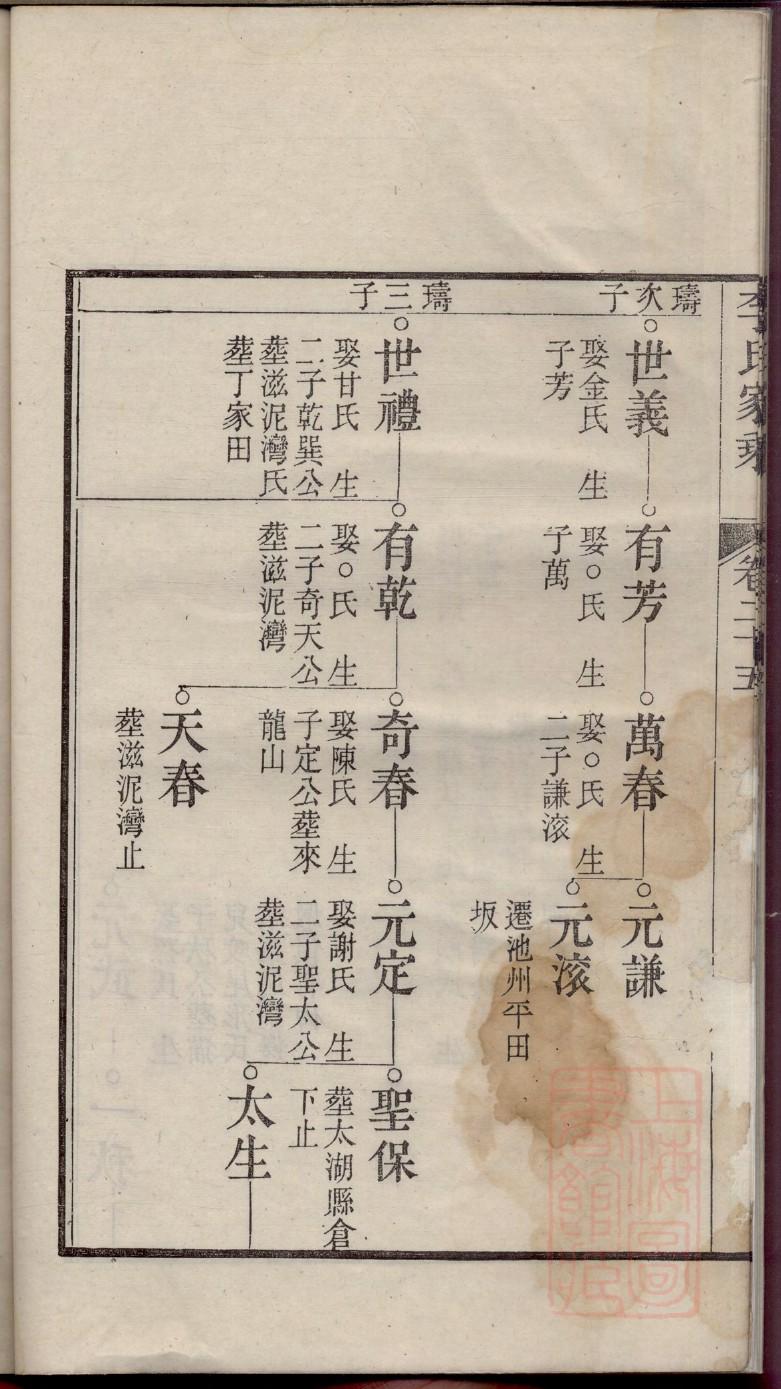 李氏家乘
卷二十五
璹次子
世義
娶金氏 生
子芳
有芳
娶○氏 生
子萬
萬春
娶○氏 生
二子謙滚
元謙
元滚
遷池州平田
坂
璹三子
世禮
娶甘氏 生
二子乾巽公
塟滋泥灣氏
塟丁家田
有乾
娶○氏 生
二子奇天公
塟滋泥灣
奇春
娶陳氏 生
子定公塟來
龍山
元定
娶謝氏 生
二子聖太公
塟滋泥灣
聖保
塟太湖縣倉
下止
太生
天春
塟滋泥灣止
上海圖
書館藏